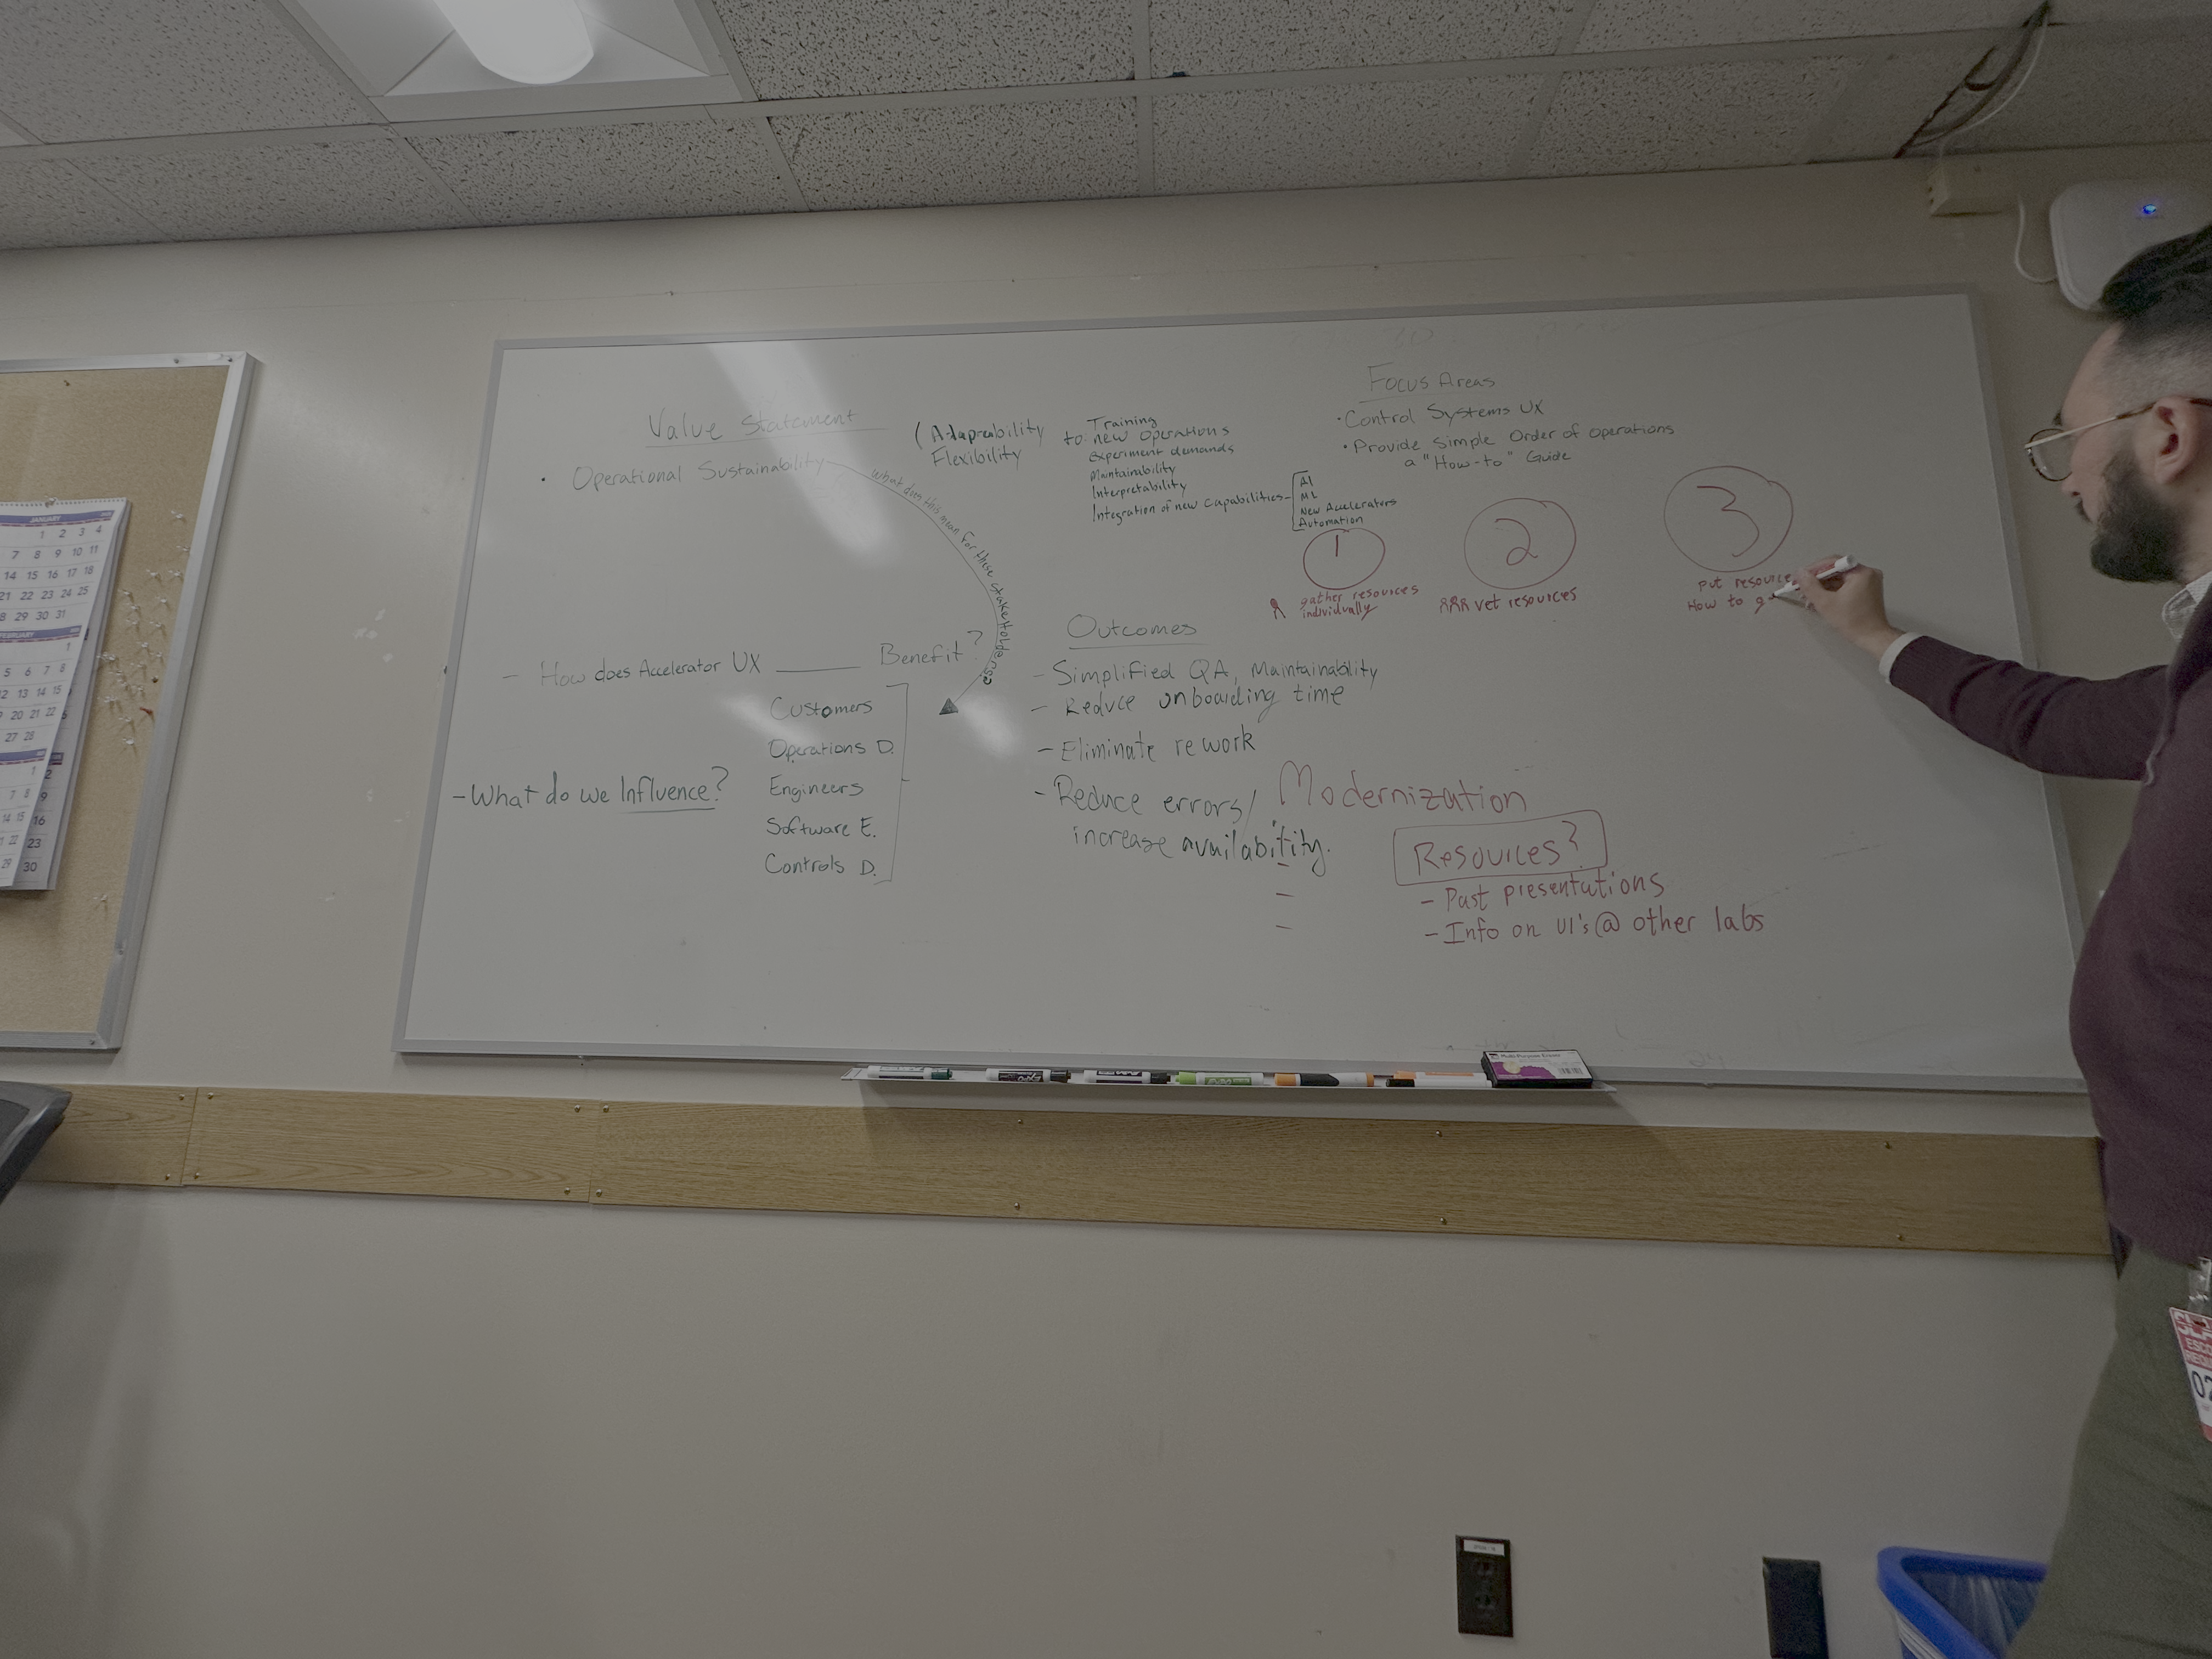 Value Statement
• Operational Sustainability
What does this mean for these stakeholders?
(Adapreability
Flexibility
to new operations
Training
Experiment demands
Maintainability
Interpretability
Integration of new capabilities
AI
ML
New Accelerators
Automation
Focus Areas
• Control Systems UX
• Provide Simple Order of Operations
a "How-to" Guide
1
gather resources
individually
2
vet resources
3
put resource
How to g
- How does Accelerator UX ______ Benefit?
Customers
Operations D.
Engineers
Software E.
Controls D.
- What do we Influence?
Outcomes
- Simplified QA, Maintainability
- Reduce onboarding time
- Eliminate rework
- Reduce errors/
increase availability.
Modernization
-
-
-
Resources?
- Past presentations
- Info on UI's @ other labs
JANUARY
1 2 3 4
7 8 9 10 11
14 15 16 17 18
21 22 23 24 25
28 29 30 31
FEBRUARY
1
5 6 7 8
12 13 14 15
19 20 21 22
27 28
1
7 8
14 15
22
29
2
9
16
23
30
Multi-Purpose Eraser
ESCO
02